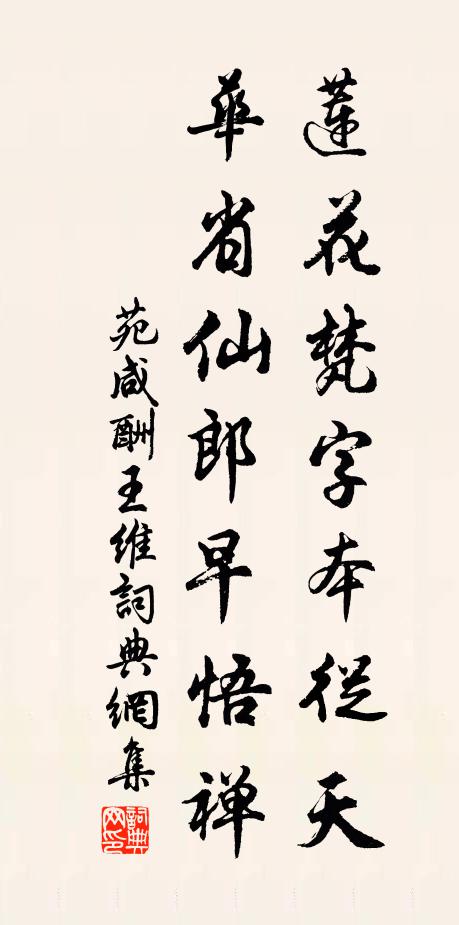 蓮花梵字本從天
華省仙郎早悟禅
苑咸酬王維詞典網集
詞典网印